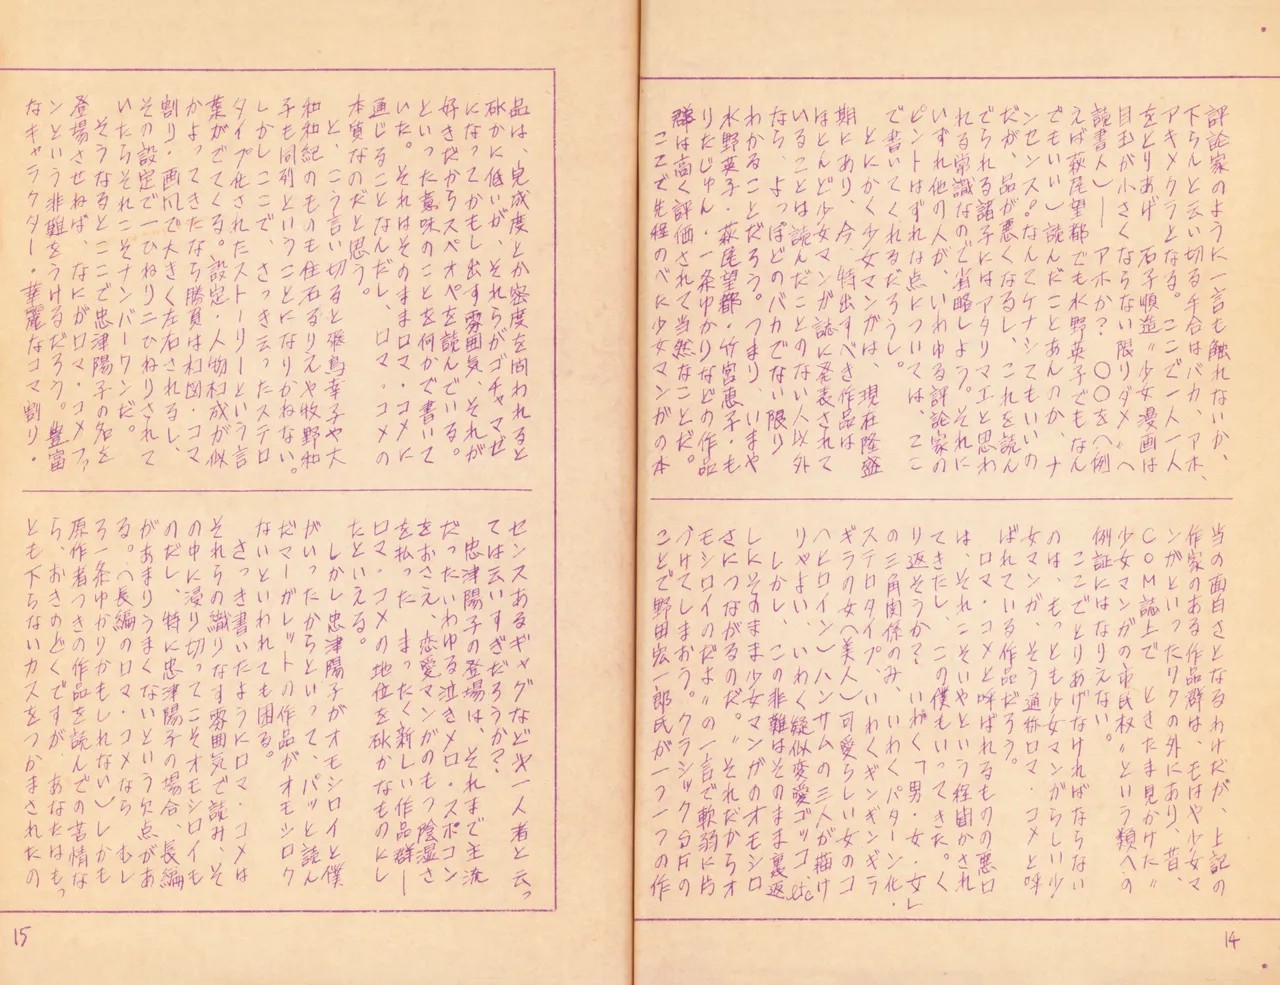 評論家のように一言も触れないか、
下らんと云い切る手合はバカ、アホ、
アキメクラとなる。ここで一人一人
をとりあげ 石子順造〝少女漫画は
目玉が小さくならない限りダメ〟へ
読書人)― アホか? 〇〇を(例
えば萩尾望都でも水野英子でもなん
でもいい)読んだことあんのか、ナ
ンセンス。なんてケナシてもいいの
だが、品が悪くなるし、これを読ん
でられる諸子にはアタリマエと思わ
れる常識なので省略しよう。それに
いずれ他の人が、いわゆる評論家の
ピントはずれな点については、ここ
で書いてくれるだろうし。
とにかく少女マンガは、現在隆盛
期にあり、今、特出すべき作品は
ほとんど少女マンガ誌に発表されて
いることは読んだことのない人以外
なら、よっぽどのバカでない限り
わかることだろう。つまり、いまや
水野英子・萩尾望都・竹宮恵子・も
りたじゅん・一条ゆかりなどの作品
群は高く評価されて当然なことだ。
ここで先程のべた少女マンガの本
当の面白さとなるわけだが、上記の
作家のある作品群は、もはや少女マ
ンガといったワクの外にあり、昔、
COM誌上で ときたま見かけた〝
少女マンガの市民权〟という類への
例証にはなりえない。
ここでとりあげなければならない
のは、もっとも少女マンガらしい少
女マンガ、そう通称ロマ・コメと呼
ばれている作品だろう。
ロマ・コメと呼ばれるものの悪口
は、それこそいやという程聞かされ
てきたし、この僕もいってきた。く
り返そうか? いわく「男・女・女」
の三角関係のみ、いわくパターン化・
ステロタイプ、いわくギンギンギラ
ギラの女(美人)可愛らしい女のコ
(ヒロイン)ハンサムの三人が描け
りゃよい、いわく疑似変愛ゴッコ、etc
しかし、この非難はそのまま裏返
しにそのまま少女マンガのオモシロ
さにつながるのだ。〝それだからオ
モシロイのだよ〟の一言で軟弱に片
づけてしまおう。クラシックSFの
ことで野田宏一郎氏が一つ一つの作
14
品は、完成度とか密度を問われると
砿かに低いが、それらがゴチャマゼ
になってかもし出す雰囲気、それが
好きだからスペオペを読んでいる。
といった意味のことを何かで書いて
いた。それはそのままロマ・コメに
通じることなんだし、ロマ・コメの
本質なのだと思う。
と、こう言い切ると飛鳥幸子や大
和和紀のものも住石るりえや牧野和
子も同列ということになりかねない。
しかしここで、さっき云ったステロ
タイプ化されたストーリーという言
葉がでてくる。設定・人物构成が似
かよってきたなら勝負は构図・コマ
割り・画风で大きく左右されるし、
その設定で一ひねり二ひねりされて
いたらそれこそナンバーワンだ。
そうなるとここで忠津陽子の名を
登場させねば、なにがロマ・コメファ
ンという非難をうけるだろう。豊富
なキャラクター・華麗なコマ割り・
センスあるギャグなど〻一人者と云っ
ては云いすぎだろうか?.
忠津陽子の登場は、それまで主流
だったいわゆる泣きメロ・スポコン
をおさえ、恋愛マンガのもつ陰湿さ
を払った まったく新しい作品群―
ロマ・コメの地位を砿かなものにし
たといえる。
しかし忠津陽子がオモシロイと僕
がいったからといって、パッと読ん
だマーガレットの作品がオモシロク
ないといわれても困る。
さっき書いたようにロマ・コメは
それらの織りなす雰囲気で読み、そ
の中に浸り切ってこそオモシロイも
のだし、特に忠津陽子の場合、長編
があまりうまくないという欠点があ
る。(長編のロマ・コメなら むし
ろ一条ゆかりかもしれない)しかも
原作者つきの作品を読んでの苦情な
ら、おきのどくですが、あなたはもっ
とも下らないカスをつかまされたの
15